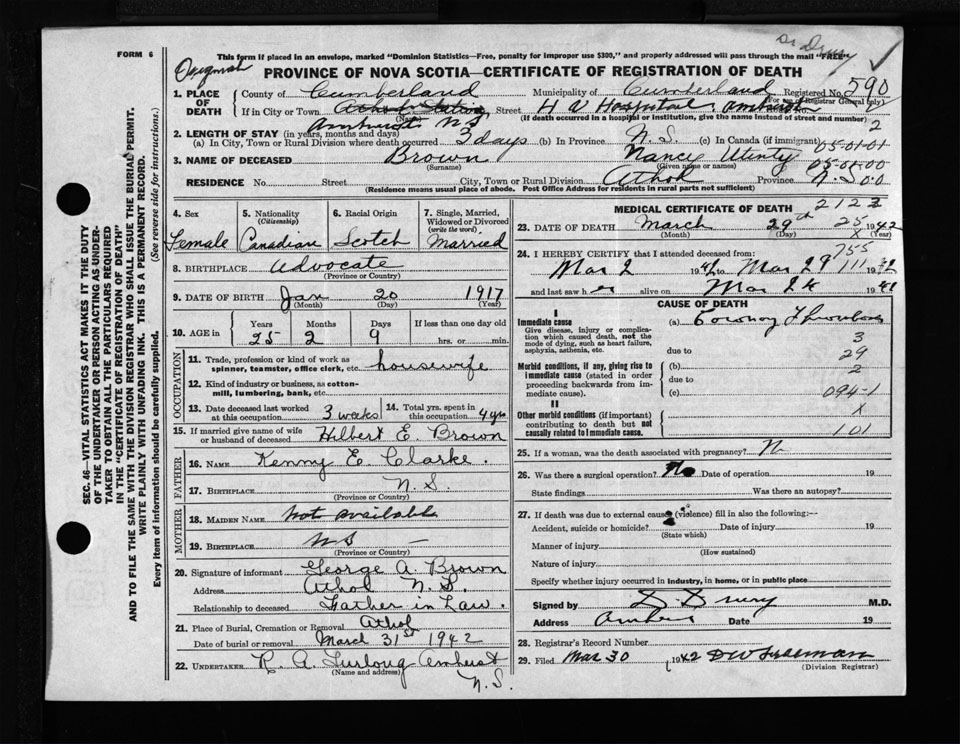 FORM 6
This form if placed in an envelope, marked "Dominion Statistics—Free, penalty for improper use $300," and properly addressed will pass through the mail "FREE"
Original
PROVINCE OF NOVA SCOTIA—CERTIFICATE OF REGISTRATION OF DEATH
1. PLACE OF DEATH
County of Cumberland Municipality of Cumberland Registered No. 590
(For use of Registrar General only)
If in City or Town Amherst N.S. Street H V Hospital, Amherst
(Name) (If death occurred in a hospital or institution, give the name instead of street and number)
2
2. LENGTH OF STAY (in years, months and days)
(a) In City, Town or Rural Division where death occurred 3 days (b) In Province N.S. (c) In Canada (if immigrant) 05-01-01
3. NAME OF DECEASED Brown Nancy 05-01-00
(Surname) (Given name or names)
RESIDENCE No. Street City, Town or Rural Division Athol Province N.S. 0.0
(Residence means usual place of abode. Post Office Address for residents in rural parts not sufficient)
4. Sex Female
5. Nationality (Citizenship) Canadian
6. Racial Origin Scotch
7. Single, Married, Widowed or Divorced (write the word) Married
8. BIRTHPLACE Advocate
(Province or Country)
9. DATE OF BIRTH Jan 20 1917
(Month) (Day) (Year)
10. AGE in Years Months Days If less than one day old
25 2 9 hrs. or min.
OCCUPATION
11. Trade, profession or kind of work as spinner, teamster, office clerk, etc. housewife
12. Kind of industry or business, as cotton-mill, lumbering, bank, etc.
13. Date deceased last worked at this occupation 3 weeks
14. Total yrs. spent in this occupation 4 yrs
15. If married give name of wife or husband of deceased Hilbert E. Brown
FATHER
16. Name Kenny E Clarke.
17. Birthplace N.S.
(Province or Country)
MOTHER
18. Maiden Name Not available
19. Birthplace N S —
(Province or Country)
20. Signature of informant George A. Brown
Address Athol N.S.
Relationship to deceased Father in Law.
21. Place of Burial, Cremation or Removal Athol
Date of burial or removal March 31st 1942
22. UNDERTAKER R. A. Furlong Amherst
(Name and address)
N.S.
MEDICAL CERTIFICATE OF DEATH 2123
23. DATE OF DEATH March 29th 25 1942
(Month) (Day) X (Year)
24. I HEREBY CERTIFY that I attended deceased from: 755
Mar 2 1942 to Mar 29 111 1942
and last saw her alive on Mar 24 194
CAUSE OF DEATH
I
Immediate cause
Give disease, injury or complication which caused death, not the mode of dying, such as heart failure, asphyxia, asthenia, etc.
(a)
due to
3
29
Morbid conditions, if any, giving rise to immediate cause (stated in order proceeding backwards from immediate cause).
(b)
2
due to
(c) 094-1
II
Other morbid conditions (if important) contributing to death but not causally related to immediate cause.
X
101
25. If a woman, was the death associated with pregnancy? No
26. Was there a surgical operation? No Date of operation 19
State findings Was there an autopsy?
27. If death was due to external causes (violence) fill in also the following:—
Accident, suicide or homicide? Date of injury 19
(State which)
Manner of injury
(How sustained)
Nature of injury
Specify whether injury occurred in industry, in home, or in public place
Signed by D. Drury M.D.
Address Amherst Date 19
28. Registrar's Record Number
29. Filed Mar 30 1942
(Division Registrar)
SEC. 46—VITAL STATISTICS ACT MAKES IT THE DUTY
OF THE UNDERTAKER OR PERSON ACTING AS UNDER-
TAKER TO OBTAIN ALL THE PARTICULARS REQUIRED
IN THE "CERTIFICATE OF REGISTRATION OF DEATH"
AND TO FILE THE SAME WITH THE DIVISION REGISTRAR WHO SHALL ISSUE THE BURIAL PERMIT.
WRITE PLAINLY WITH UNFADING INK. THIS IS A PERMANENT RECORD.
Every item of information should be carefully supplied. (See reverse side for instructions.)